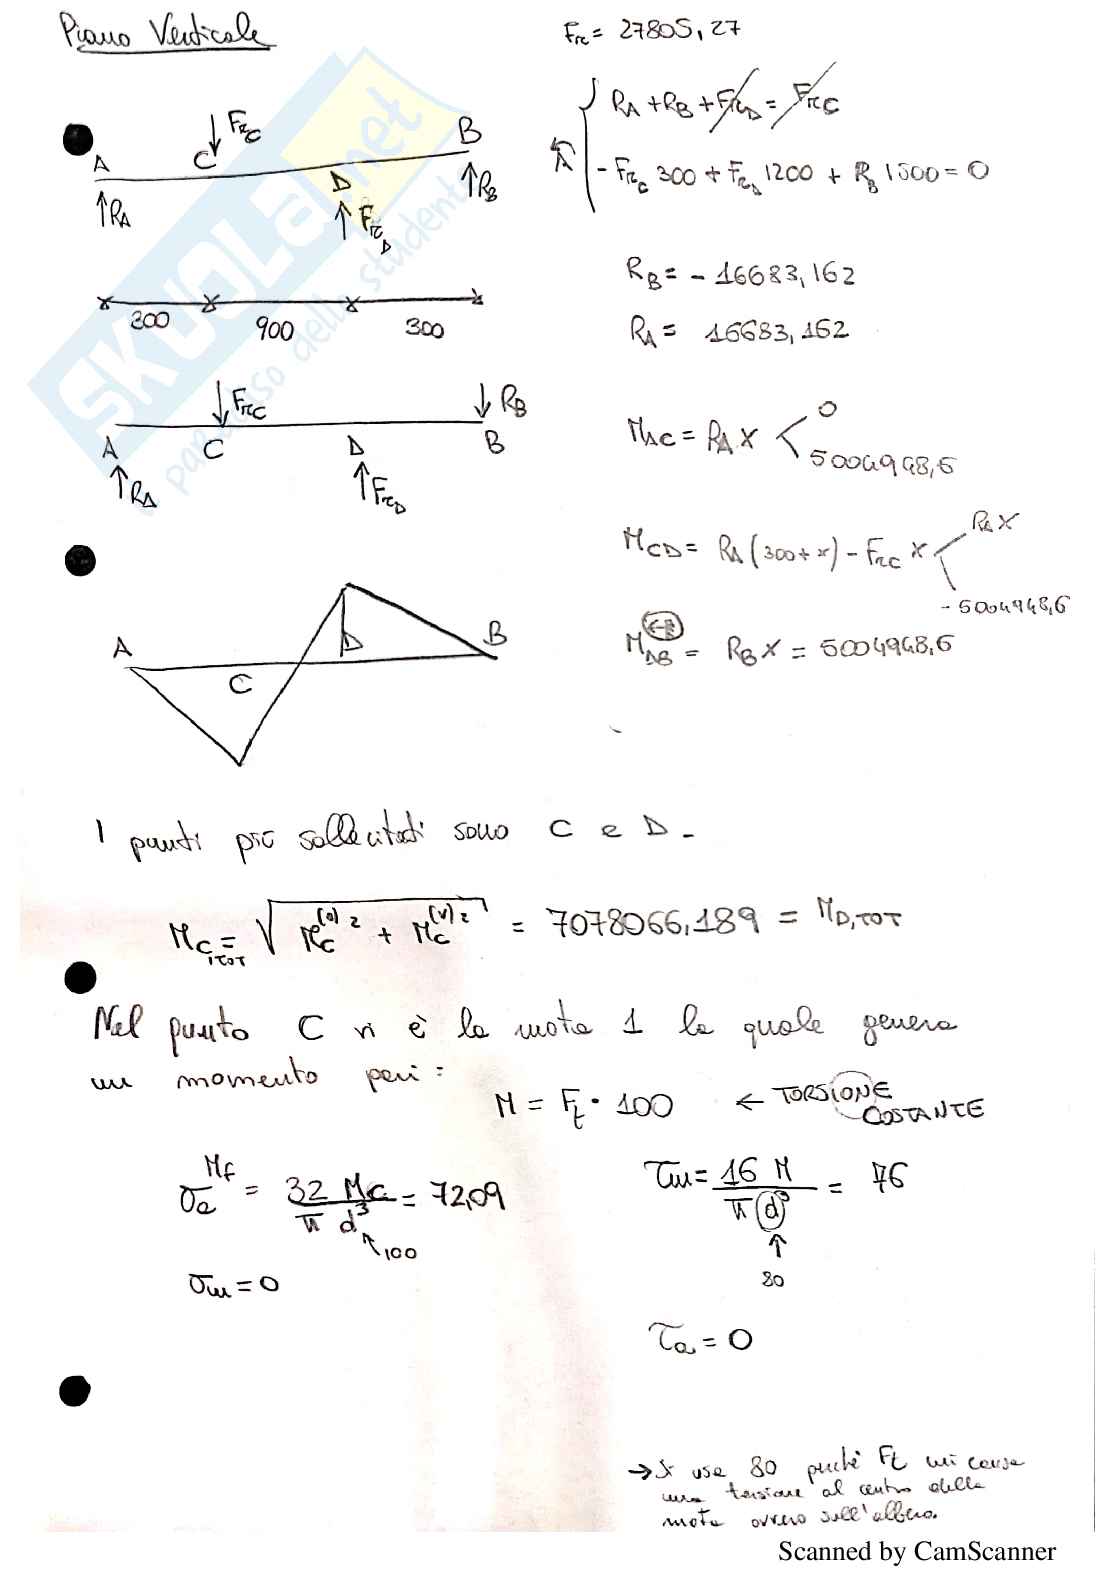 Piano Verticale
Frc = 27805,27
RA + RB + FrcD = FrcC
A
- FrcC 300 + FrcD 1200 + RB 1500 = 0
A C ↓FrcC D B
↑RA ↑FrcD ↑RB
RB = - 16683,162
RA = 16683,162
300 900 300
↓FrcC ↓RB
A C D B
↑RA ↑FrcD
MAC = RA x < 0
5004948,6
MCD = RA (300+x) - FrcC x < RA x
- 5004948,6
MDB = RB x = 5004948,6
A C D B
I punti più sollecitati sono C e D -
MC,TOT = √ MC(o)² + MC(v)² = 7078066,189 = MD,TOT
Nel punto C vi è la ruota 1 la quale genera
un momento pari :
M = Ft · 100 ← TORSIONE
COSTANTE
σa Mf = 32 Mc / π d³ = 72,09
↑100
τm = 16 M / π d³ = 76
↑
80
σm = 0
τa = 0
→ Si usa 80 perchè Ft mi causa
una torsione al centro della
ruota ovvero sull'albero.
SKUOLA.net
il paradiso dello studente
Scanned by CamScanner